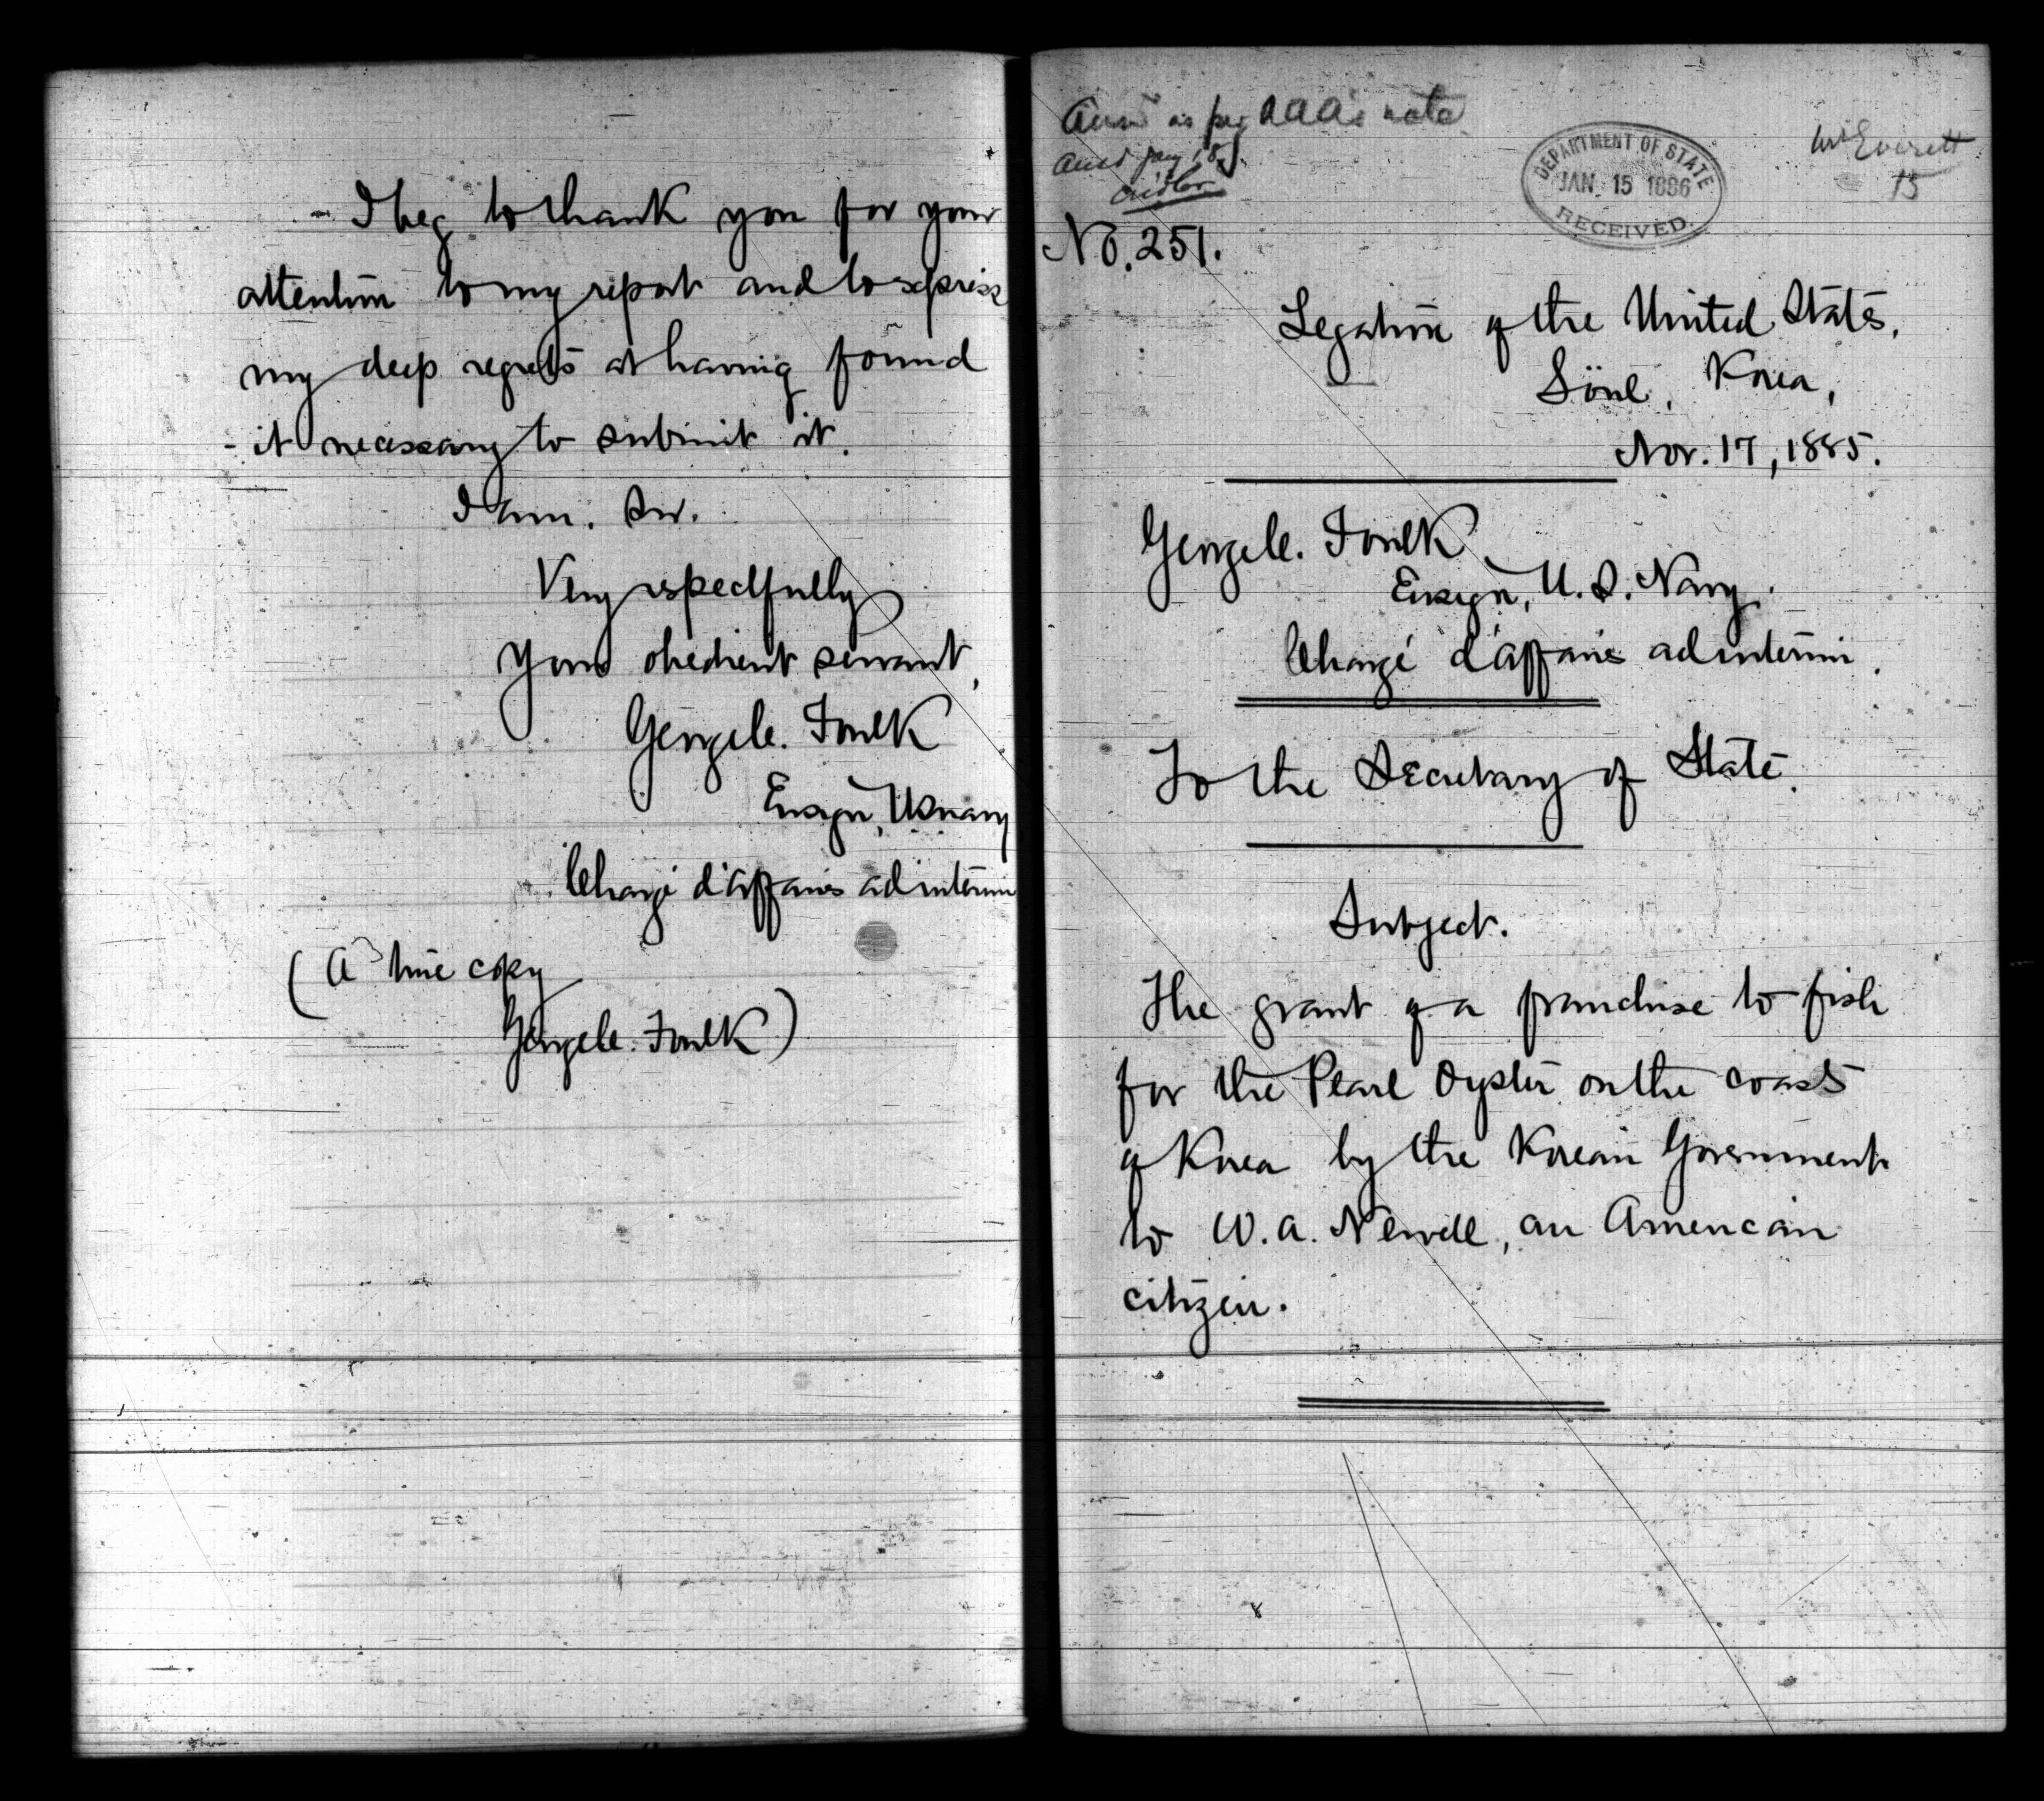 I beg to thank you for your
attention to my report and to express
my deep regrets at having found
it necessary to submit it.
I am, Sir,
Very respectfully
Your obedient servant,
George C. Foulk
Ensign, US Navy
Chargé d'affaires ad interim
(A true copy
George C. Foulk)
as per AAA's note
Jan 18
No. 251.
DEPARTMENT OF STATE
JAN 15 1886
RECEIVED.
Mr Everett
15
Legation of the United States,
Söul, Korea,
Nov. 17, 1885.
George C. Foulk
Ensign, U.S. Navy.
Chargé d'affaires ad interim.
To the Secretary of State.
Subject.
The grant of a franchise to fish
for the Pearl Oyster on the coasts
of Korea by the Korean Government
to W. A. Newell, an American
citizen.